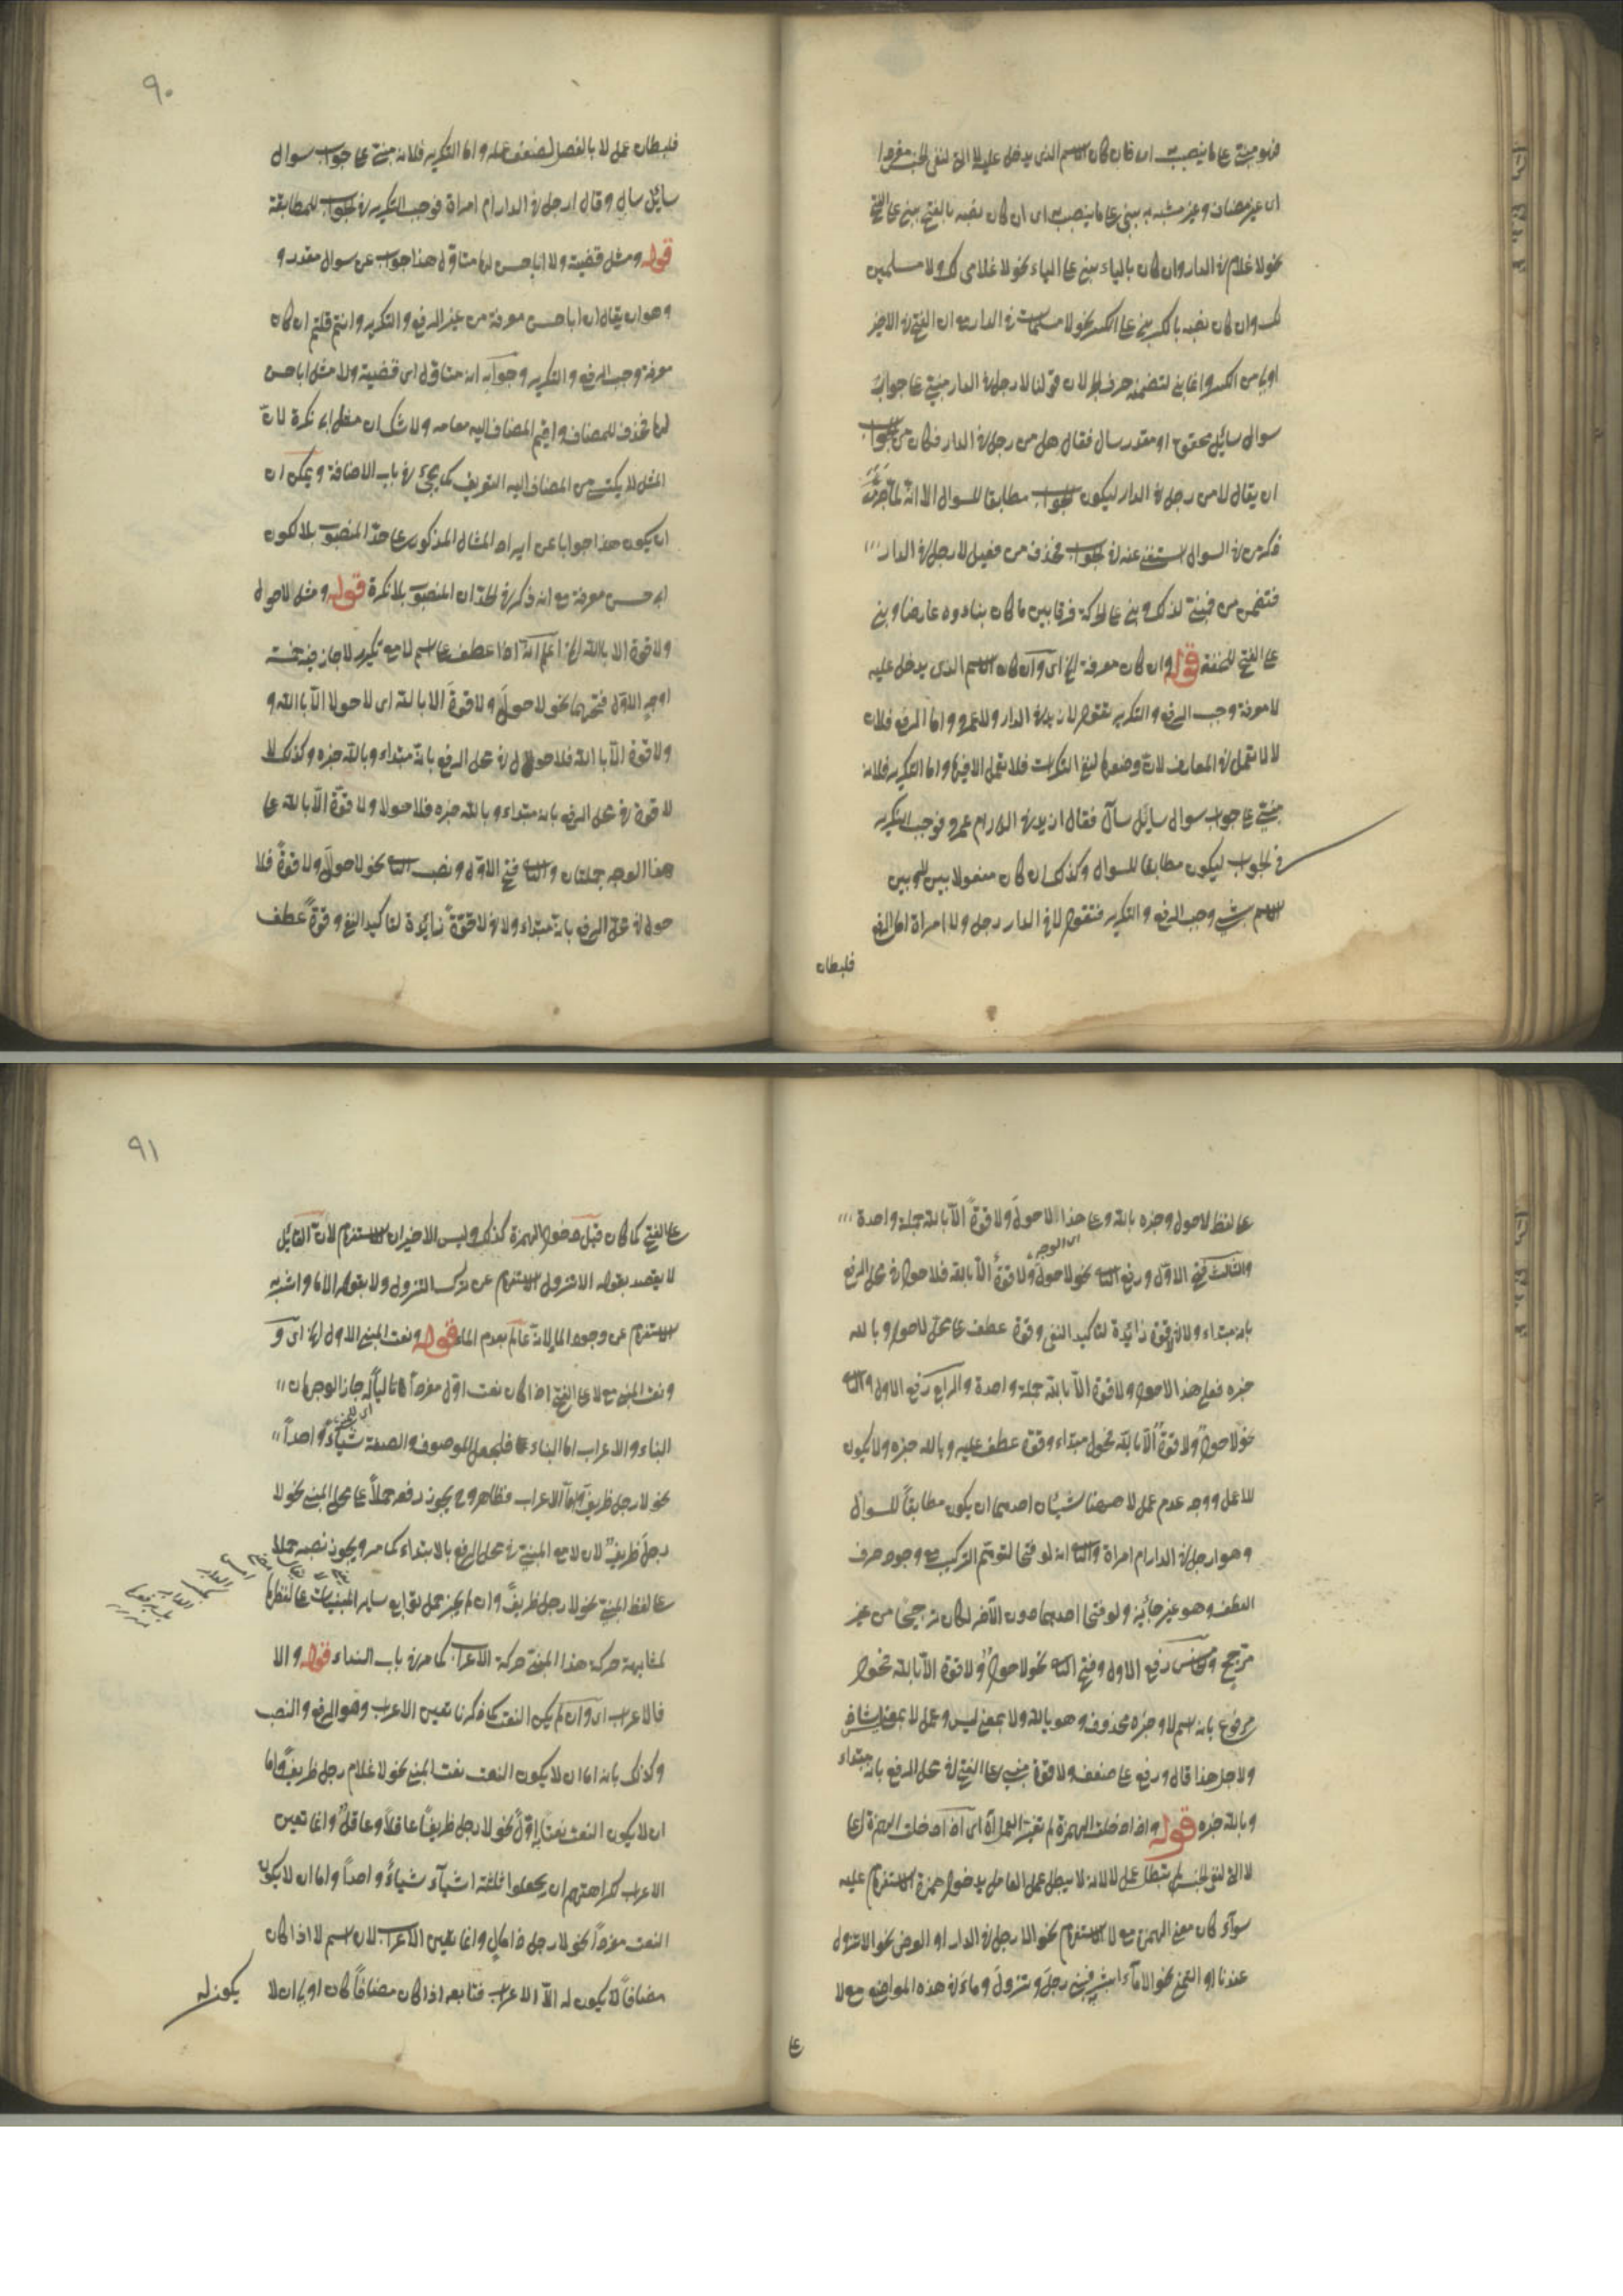 فهو مبني على ما ينصب به اى فان كان الاسم الذى يدخل عليه لا التى لنفى الجنس مفردا
اى غير مضاف وغير مشبه به يبنى على ما ينصب به اى ان كان نصبه بالفتح يبنى على الفتح
نحو لا غلام فى الدار وان كان بالياء يبنى على الياء نحو لا غلامى لك ولا مسلمين
لك وان كان نصبه بالكسر يبنى على الكسر نحو لا مسلمات فى الدار مع ان الفتح فى الاخير
اولى من الكسر وانما بنى لتضمنه حرف الجر لان قولنا لا رجل فى الدار مبنى على جواب
سوال سائل محقق او مقدر سال فقال هل من رجل فى الدار فكان من الجواب
ان يقال لا من رجل فى الدار ليكون الجواب مطابقا للسوال الا انه لما جرى
ذكر من فى السوال استغنى عنه فى الجواب فحذف من فقيل لا رجل فى الدار
فتضمن من فبنى لذلك وبنى على الحركة فرقا بين ما كان بناؤه عارضا وبنى
على الفتح للخفة قوله وان كان معرفة الخ اى وان كان الاسم الذى يدخل عليه
لا معرفة وجب الرفع والتكرير تقول لا زيد فى الدار ولا عمرو واما الرفع فلان
لا لا يعمل فى المعارف لان وضعها لنفى النكرات فلا يعمل الا فيها واما التكرير فلانه
مبنى على جواب سوال سائل سأل فقال ازيد فى الدار ام عمرو فوجب التكرير
فى الجواب ليكون مطابقا للسوال وكذلك ان كان مفعولا بينه وبين
الاسم بشئ وجب الرفع والتكرير فتقول لا فى الدار رجل ولا امراة اما الرفع
فلبطلان
٩٠
فلبطلان عمل لا بالفصل لضعف عمله واما التكرير فلانه مبنى على جواب سوال
سايل سال وقال ارجل فى الدار ام امراة فوجب التكرير فى الجواب للمطابقة
قوله ومثل قضية ولا ابا حسن لها متاول هذا جواب عن سوال مقدر و
وهو ان يقال ان ابا حسن معرفة من غير الرفع والتكرير وانتم قلتم ان كان
معرفة وجب الرفع والتكرير وجوابه انه متاول اى قضية ولا مثل ابا حسن
لها فحذف المضاف واقيم المضاف اليه مقامه ولا شك ان مثل ابى نكرة لان
المثل لا يكتسى من المضاف اليه التعريف كما يجئ فى باب الاضافة ويمكن ان
ان يكون هذا جوابا عن ايراد المثال المذكور على حد المنصوب بلا لكون
ابى حسن معرفة مع انه ذكر فى الحد ان المنصوب بلا نكرة قوله ومثل لا حول
ولا قوة الا بالله الخ اعلم انه اذا عطف على اسم لا مع تكرير لا جاز فيه خمسة
اوجه الاول فتحهما نحو لا حول ولا قوة الا بالله اى لا حول الا بالله و
ولا قوة الا بالله فلا حول فى محل الرفع بانه مبتداء وبالله خبره وكذلك لا
لا قوة فى محل الرفع بانه مبتداء وبالله خبره فلا حولا ولا قوة الا بالله على
هذا الوجه جملتان والثانى فتح الاول ونصب الثانى نحو لا حول ولا قوة فلا
حول فى محل الرفع بانه مبتداء ولا فى لا قوة زايدة لتاكيد النفى وقوة عطف
على لفظ لا حول وخبره بالله وعلى هذا لا حول ولا قوة الا بالله جملة واحدة
والثالث فتح الاول ورفع الثانى نحو لا حول ولا قوة الا بالله فلا حول فى محل الرفع
بانه مبتداء ولا فى قوة زائدة لتاكيد النفى وقوة عطف على محل لا حول وبالله
خبره فعلى هذا لا حول ولا قوة الا بالله جملة واحدة والرابع رفع الاول والثانى
نحو لا حول ولا قوة الا بالله فحول مبتداء وقوة عطف عليه وبالله خبره ولا يكون
للا عمل ووجه عدم عمل لا ههنا شيئان احدهما ان يكون مطابقا للسوال
وهو ارجل فى الدار ام امراة والثانى انه لو فتحا لتوهم التركيب مع وجود حرف
العطف وهو غير جائز ولو فتحا احدهما دون الآخر لكان ترجيحا من غير
مرجح والخامس رفع الاول وفتح الثانى نحو لا حول ولا قوة الا بالله فحول
مرفوع بانه اسم لا وخبره محذوف وهو بالله ولا بمعنى ليس وعمل لا بمعناه شاذ
ولاجل هذا قال ورفع على ضعف ولا قوة مبنى على الفتح فى محل الرفع بانه مبتداء
وبالله خبره قوله واذا دخلت الهمزة لم تغير العمل اى اذا دخلت الهمزة على
لا التى لنفى الجنس لم تبطل عمل لا لانه لا يبطل عمل العامل بدخول همزة الاستفهام عليه
سوآء كان معنى الهمزة مع لا الاستفهام نحو الا رجل فى الدار او العرض نحو الا نزول
عندنا او التمنى نحو الا مآء اشربه فبنى رجل ونزول وماء فى هذه المواضع مع لا
على
٩١
على الفتح كما كان قبل دخول الهمزة كذلك وليس الاخيران للاستفهام لان القائل
لا يقصد بقوله الا نزول الاستفهام عن ترك النزول ولا بقوله الا ما اشربه
الاستفهام عن وجود الما لانه عالم بعدم الماء قوله ونعت المبنى الاول الخ اى و
ونعت المبنى مع لا على الفتح اذا كان نعت اول مفردا تاليا له جاز الوجهان
البناء والاعراب اما البناء فلجعل الموصوف والصفة شياء واحدا
نحو لا رجل ظريف واما الاعراب فظاهر وح يجوز رفعه حملا على محل المبنى نحو لا
رجل ظريف لان لا مع المبنى فى محل الرفع بالابتداء كما مر ويجوز نصبه حملا
على لفظ المبنى نحو لا رجل ظريفا وان لم يجز حمل توابع ساير المبنيات على لفظها
لمشابهة حركة هذا المبنى حركة الاعراب كما مر فى باب النداء قوله والا
فالاعراب اى وان لم يكن النعت كما ذكرنا تعين الاعراب وهو الرفع والنصب
وكذلك بانه اما ان لا يكون النعت نعت المبنى نحو لا غلام رجل ظريفا واما
ان لا يكون النعت نعتا اول نحو لا رجل ظريف عاقلا وعاقل وانما تعين
الاعراب لكراهتهم ان يجعلوا ثلثة اشيآء شياء واحدا واما ان لا يكون
النعت مفردا نحو لا رجل ذا مال وانما تعين الاعراب لان اسم لا اذا كان
مضافا لا يكون له الا الاعراب فتابعه اذا كان مضافا كان اولى ان لا
يكون له